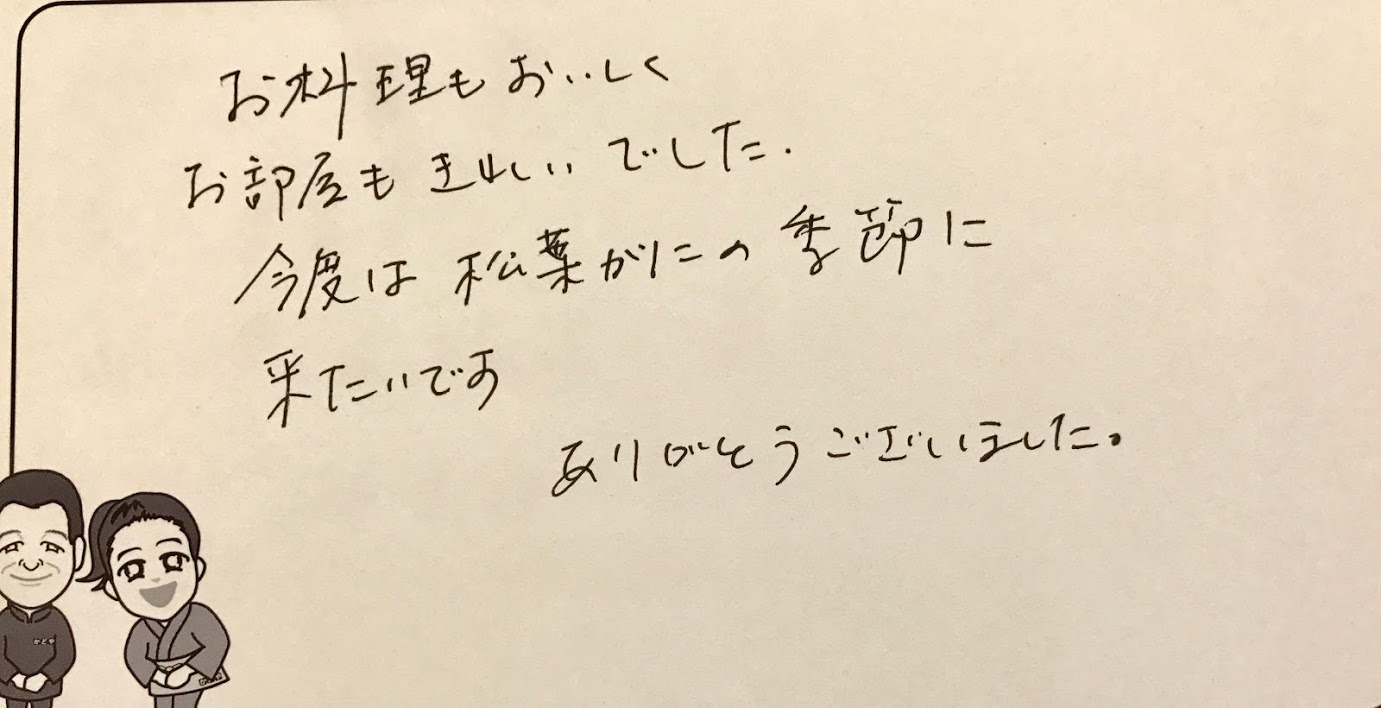 お料理もおいしく
お部屋もきれいでした.
今度は松葉がにの季節に
来たいです
ありがとうございました。